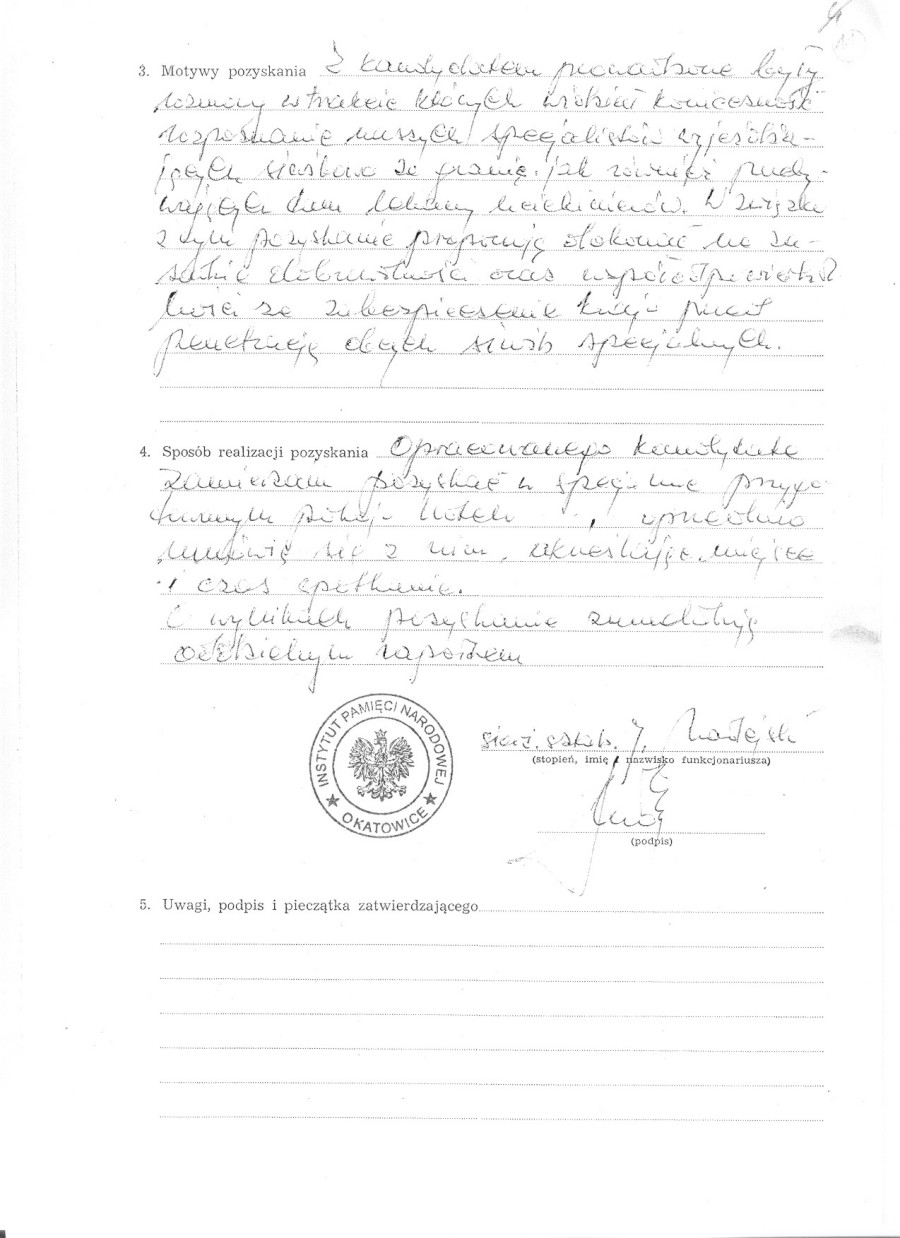 3. Motywy pozyskania Z kandydatem prowadzone były
rozmowy w trakcie których widział konieczność
rozpoznanie naszych specjalistów wyjeżdża-
jących służbowo za granicę jak również przeby-
wających
z tym pozyskanie proponuję dokonać na za-
sadzie dobrowolności oraz współodpowiedzial
ności za zabezpieczenie kraju przed
penetracją obcych służb specjalnych.
4. Sposób realizacji pozyskania Opracowanego kandydata
zamierzam pozyskać w specjalnie przygo
towanym pokoju hotelu , uprzednio
umówię się z nim, określając miejsce
i czas spotkania.
O wynikach pozyskania zamelduję
oddzielnym raportem
INSTYTUT PAMIĘCI NARODOWEJ
O KATOWICE
sierż. sztab. J.
(stopień, imię i nazwisko funkcjonariusza)
(podpis)
5. Uwagi, podpis i pieczątka zatwierdzającego